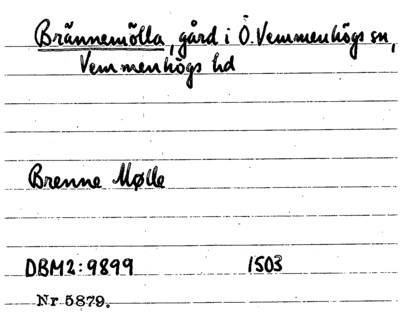 Brännemölla, gård i Ö. Vemmenhögs sn,
Vemmenhögs hd
Brenne Mølle
DBM2:9899 1503
Nr 5879.